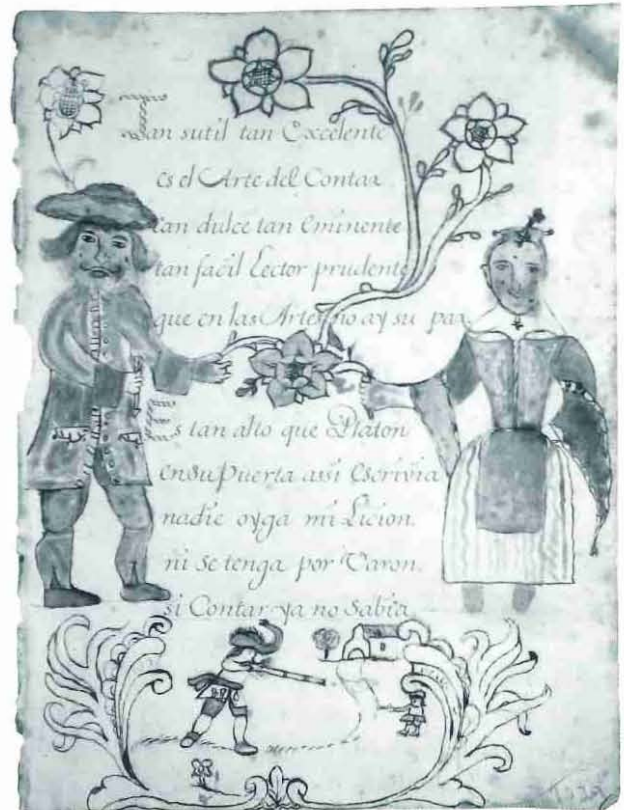 Tan sutil tan Excelente
es el Arte del Contar
tan dulce tan Eminente
tan facil Lector prudente
que en las Artes no ay su par
Es tan alto que Platon
en su Puerta assi Escrivia
nadie oyga mi Licion.
ni se tenga por Varon.
si Contar ya no Sabia